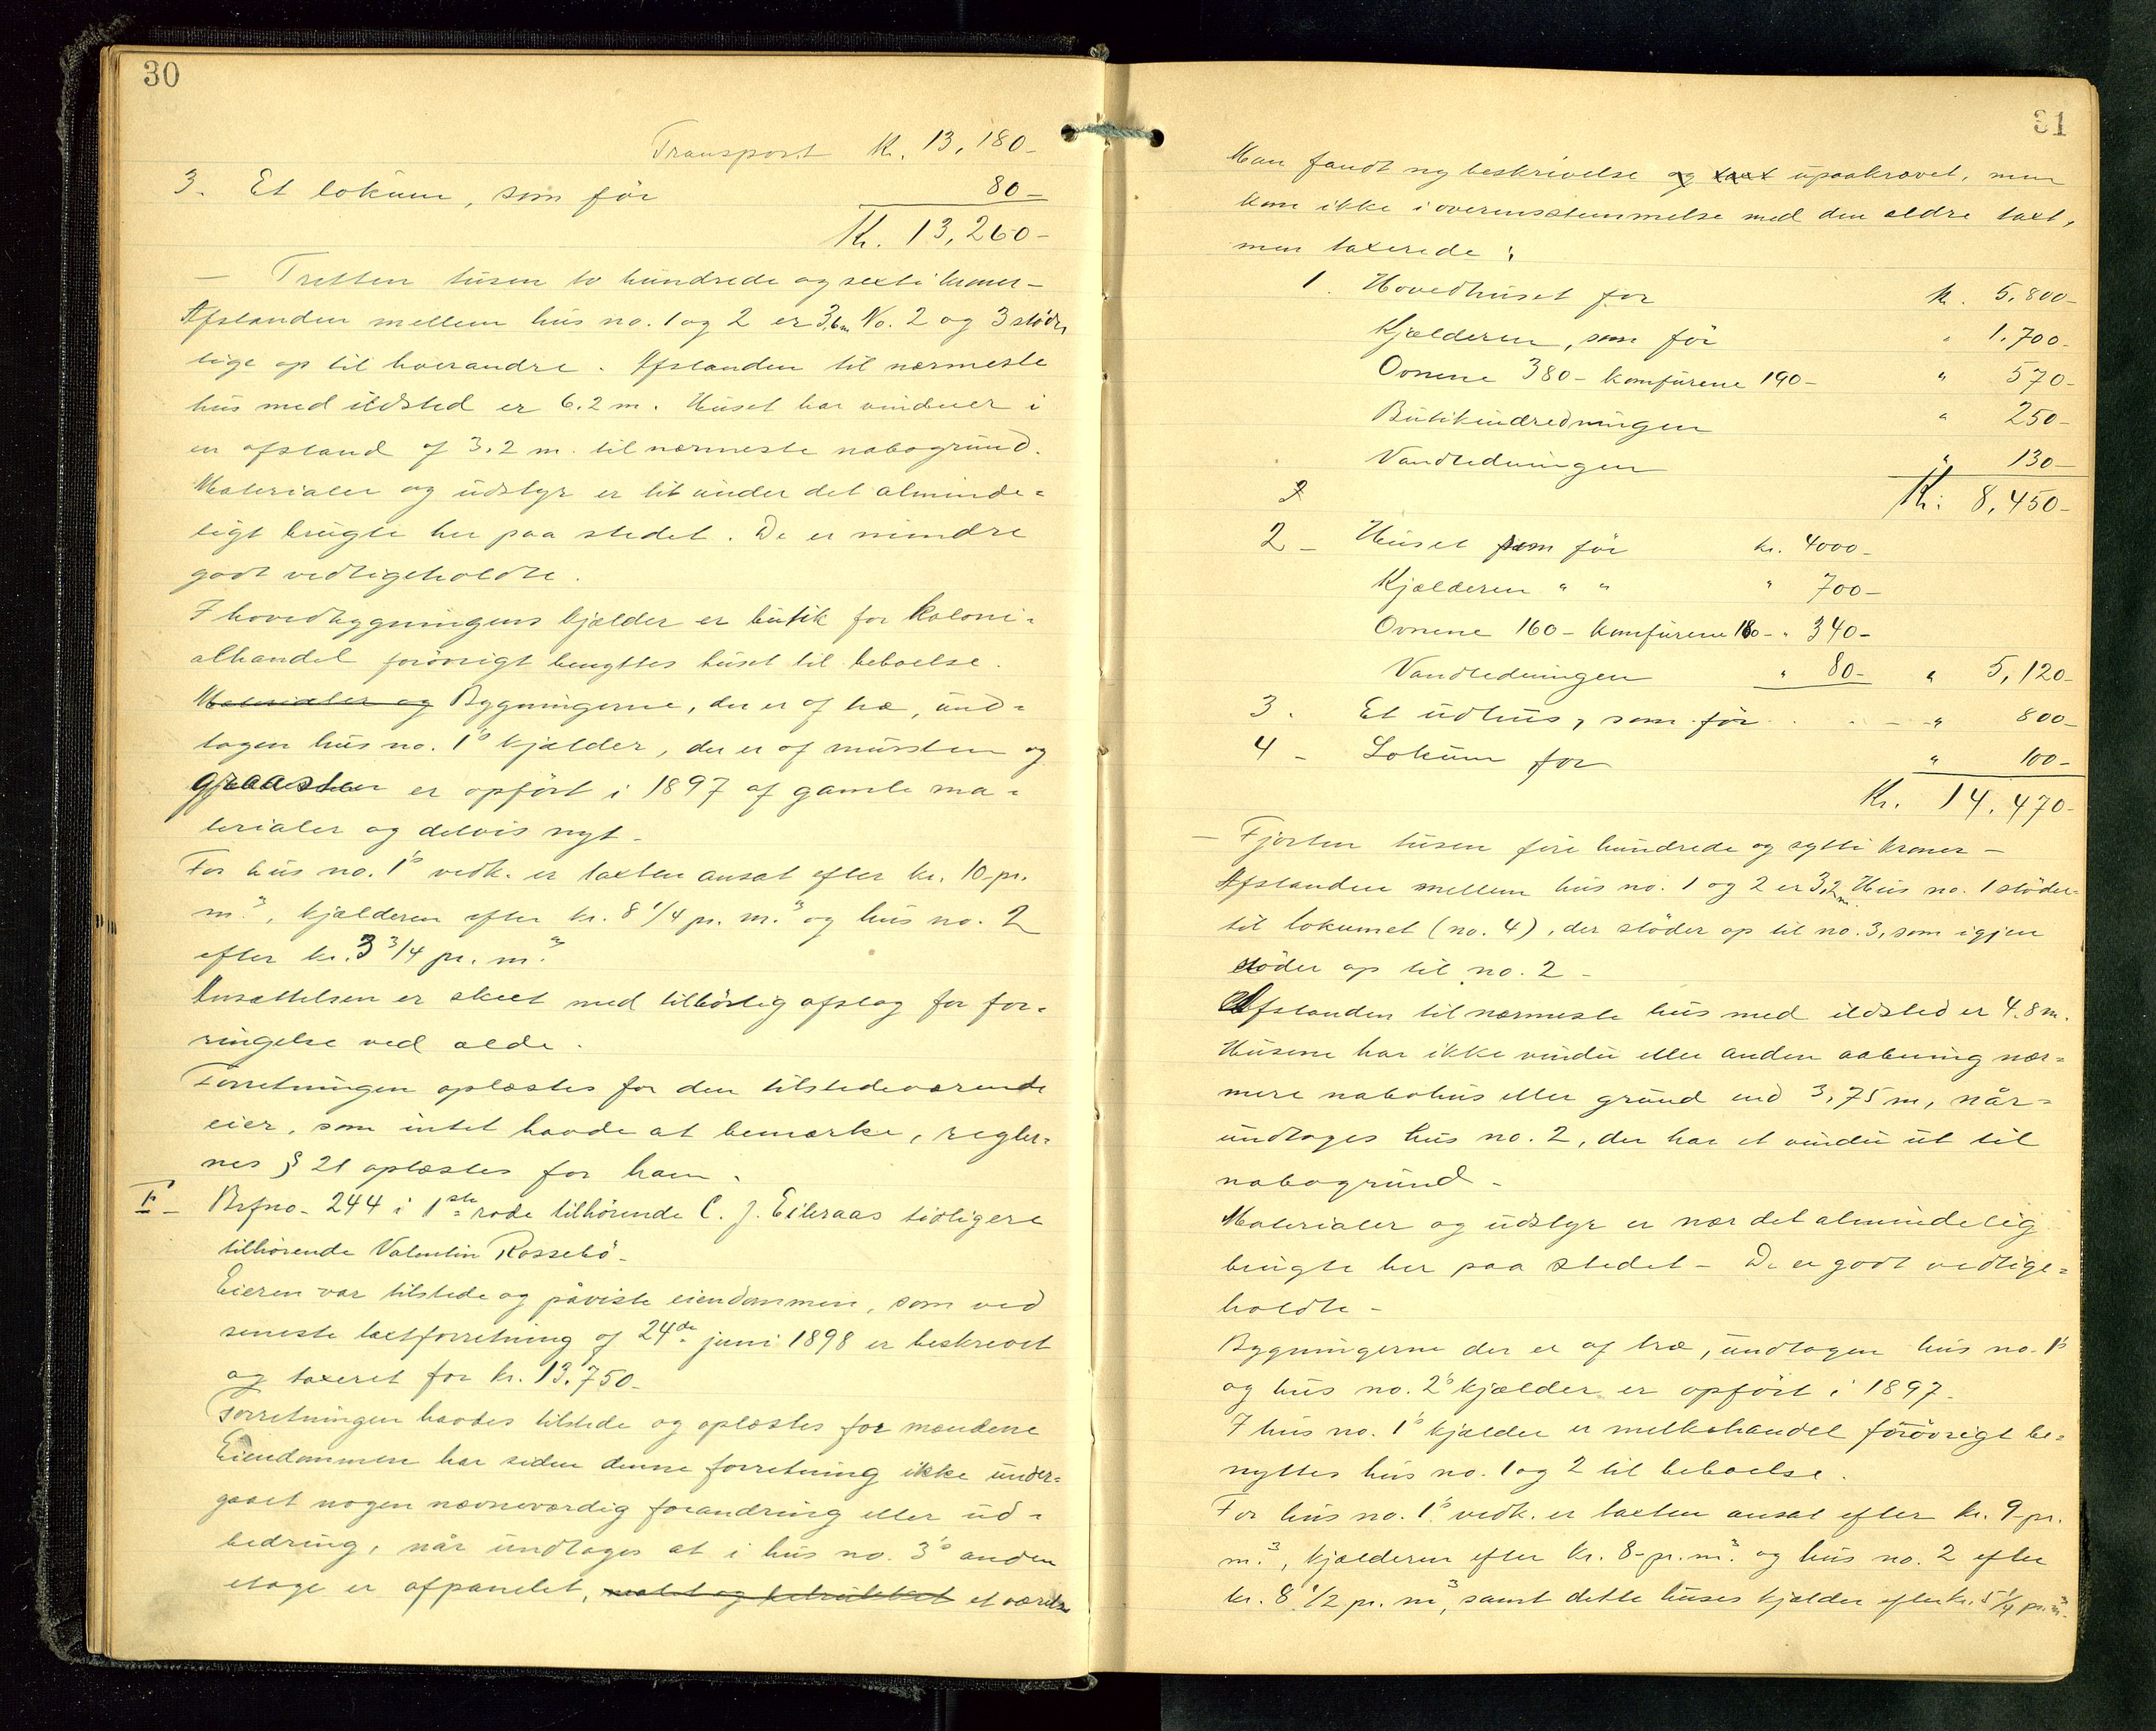 30
Transport Kr. 13,180-
3. Et lokum, som før 80-
Kr. 13,260-
- Tretten tusen to hundrede og sexti kroner -
Afstanden mellem hus no. 1 og 2 er 3,6m No. 2 og 3 støder
lige op til hverandre. Afstanden til nærmeste
hus med ildsted er 6.2 m. Huset har vinduer i
en afstand af 3.2 m. til nærmeste nabogrund.
Materialer og udstyr er lit under det alminde=
ligt brugte her paa stedet. De er mindre
godt vedligeholdte.
I hovedbygningens kjælder er butik for koloni=
alhandel forøvrigt benyttes huset til beboelse.
Materialer og Bygningerne, der er af træ, und=
tagen hus no. 1's kjælder, der er af mursten og
graasten er opført i 1897 af gamle ma=
terialer og delvis nyt.
For hus no. 1's vedk. er taxten ansat efter kr. 10- pr.
m.³, kjælderen efter kr. 8 1/4 pr. m.³ og hus no. 2
efter kr. 3 3/4 pr. m.³
Ansættelsen er skeet med tilbørlig afslag for for=
ringelse ved ælde.
Forretningen oplæstes for den tilstedeværende
eier, som intet havde at bemærke, regler=
nes § 21 oplæstes for ham.
F- Brfno. 244 i 1ste rode tilhørende C. J. Eileraas tidligere
tilhørende Valentin Rossebø-
Eieren var tilstede og påviste eiendommen, som ved
seneste taxtforretning af 24de juni 1898 er beskrevet
og taxeret for kr. 13.750-
Forretningen havdes tilstede og oplæstes for mændene
Eiendommen har siden denne forretning ikke under=
gaaet nogen nævneværdig forandring eller ud=
bedring, når undtages at i hus no. 3's anden
etage er afpanelet, malet og betrukket et værelse
31
Man fandt ny beskrivelse og taxt upaakrævet, men
kom ikke i overensstemmelse med den ældre taxt,
men taxerede:
1. Hovedhuset for kr. 5,800-
Kjælderen, som før " 1.700-
Ovnene 380- komfurene 190- " 570-
Butikindredningen " 250-
Vandledningen " 130-
2 Kr. 8,450-
2- Huset som før kr. 4000-
Kjælderen " " " 700-
Ovnene 160- komfurene 180- " 340-
Vandledningen " 80- " 5,120-
3. Et udhus, som før " 800-
4- Lokum for " 100-
Kr. 14.470-
- Fjorten tusen fire hundrede og sytti kroner -
Afstanden mellem hus no. 1 og 2 er 3,2 m. Hus no. 1 støder
til lokumet (no. 4), der støder op til no. 3, som igjen
støder op til no. 2-
Afstanden til nærmeste hus med ildsted er 4.8 m.
Husene har ikke vindu eller anden aabning nær=
mere nabohus eller grund end 3,75 m, når=
undtages hus no. 2, der har et vindu ut til
nabogrund-
Materialer og udstyr er nær det almindelig
brugte her paa stedet- De er godt vedlige=
holdte-
Bygningerne der er af træ, undtagen hus no. 1's
og hus no. 2's kjælder er opført i 1897-
I hus no. 1's kjælder er melkehandel forøvrigt be=
nyttes hus no. 1 og 2 til beboelse.
For hus no. 1's vedk. er taxten ansat efter kr. 9- pr.
m.³, kjælderen efter kr. 8- pr. m.³ og hus no. 2 efter
kr. 8 1/2 pr. m³, samt dette huses kjælder efter kr. 5 1/4 pr. m³.